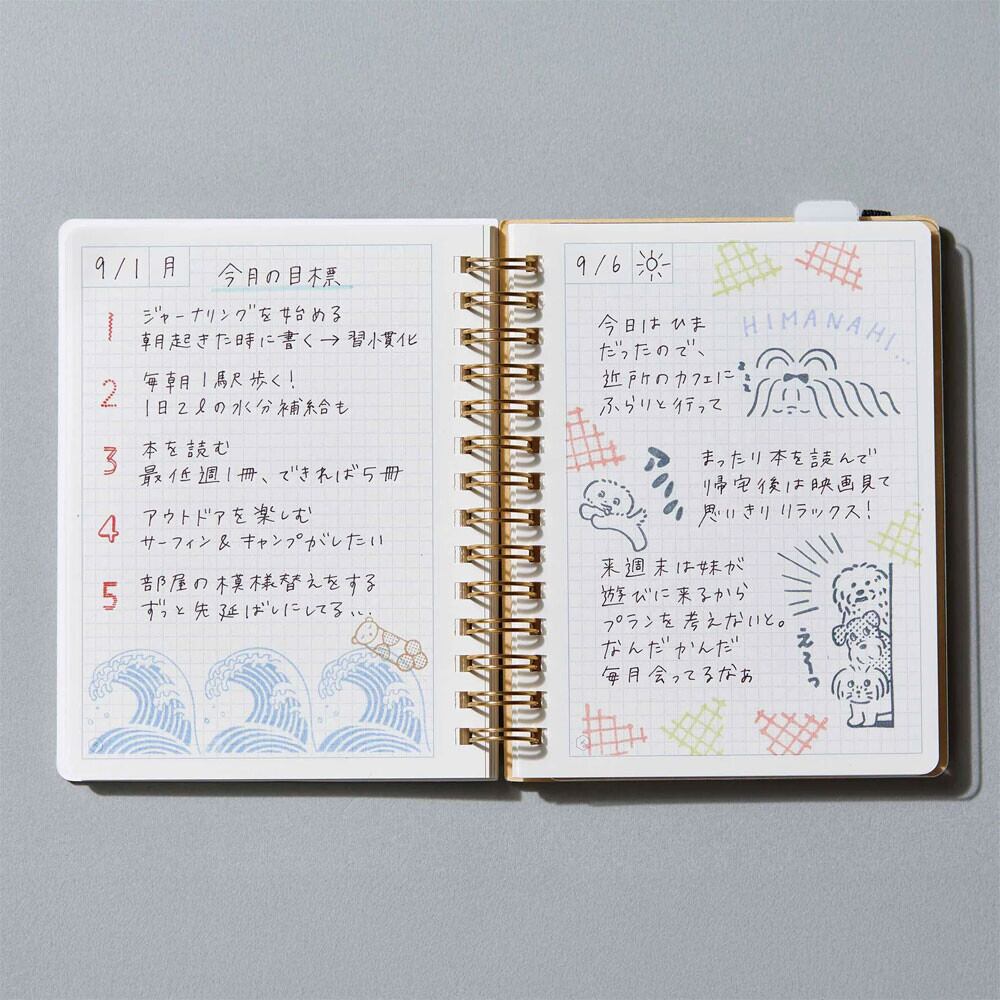 9/1 月
今月の目標
1 ジャーナリングを始める
朝起きた時に書く→習慣化
2 毎朝1駅歩く!
1日2ℓの水分補給も
3 本を読む
最低週1冊、できれば5冊
4 アウトドアを楽しむ
サーフィン&キャンプがしたい
5 部屋の模様替えをする
ずっと先延ばしにしてる...
9/6
HIMANAHI...
今日はひま
だったので、
近所のカフェに
ふらりと行って
zzz
まったり本を読んで
帰宅後は映画見て
思いきりリラックス!
来週末は妹が
遊びに来るから
プランを考えないと。
なんだかんだ
毎月会ってるなぁ
え〜っ